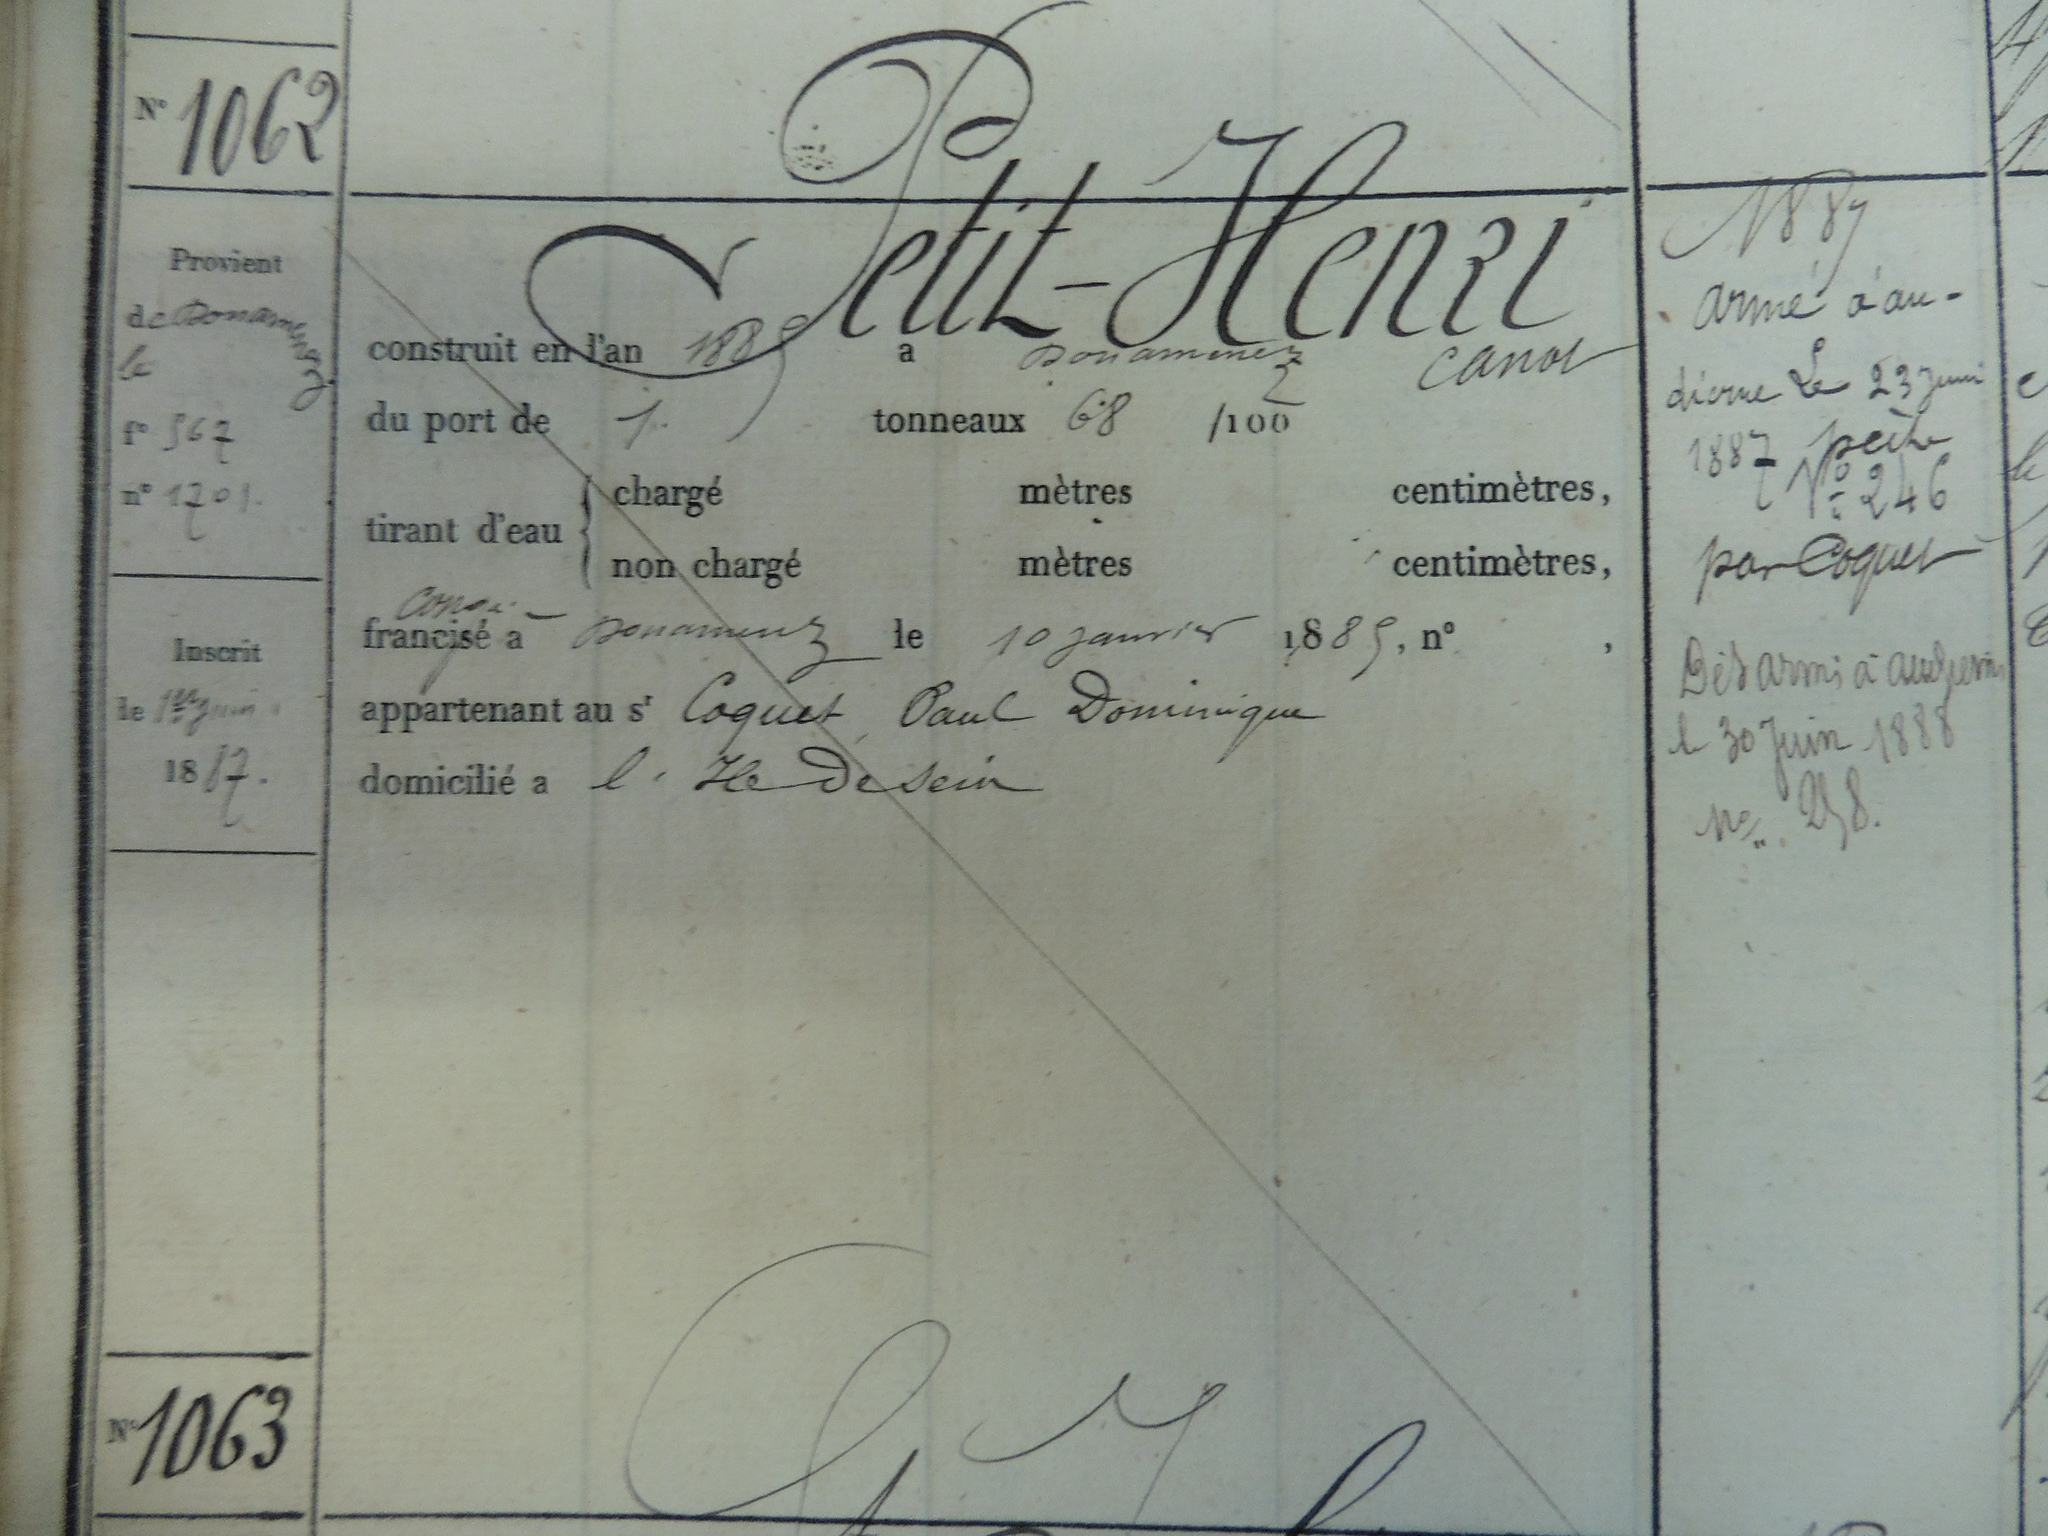 N° 1062
Petit-Henri
Provient
de Douarnenez
le
f° 567
n° 1701.
Inscrit
le 1er juin
1887.
construit en l'an 1885 a Douarnenez canot
du port de 1. tonneaux 68 /100
tirant d'eau { chargé mètres centimètres,
non chargé mètres centimètres,
Congé
francisé à Douarnenez le 10 janvier 1885, n° ,
appartenant au sr Coquet Paul Dominique
domicilié a l'Ile de sein
1887
armé à au-
dierne Le 23 juin
1887 pêche
N° 246
par Coquet
Désarmé à audierne
le 30 Juin 1888
No. 258.
N° 1063